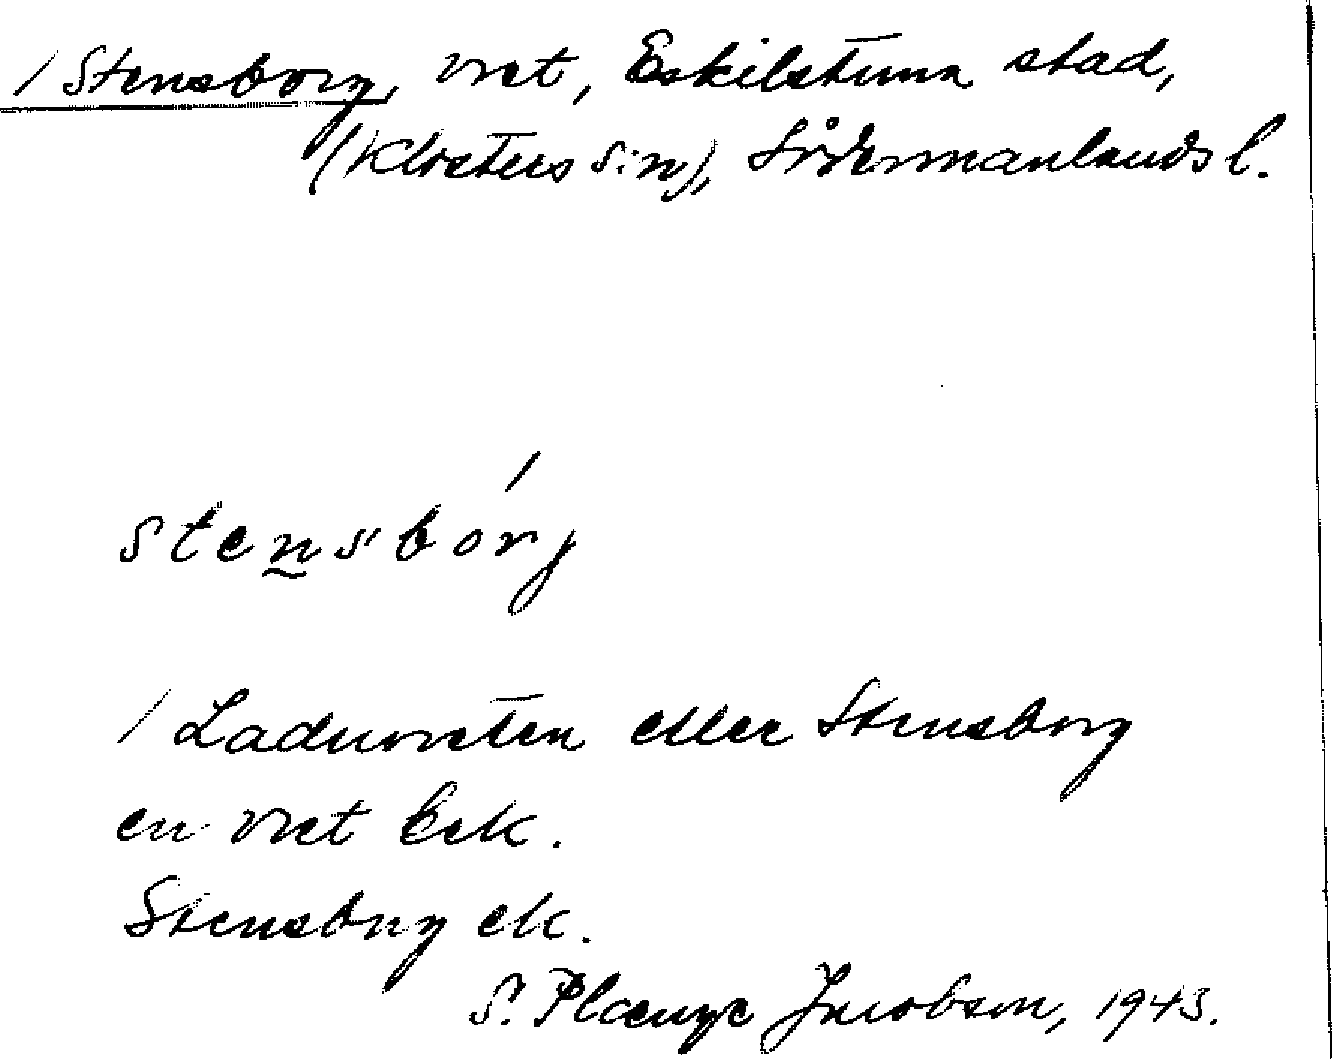 / Stensborg, vret, Eskilstuna stad,
(Klosters s:n), Södermanlands l.
stensbórj
/ Laduvreten eller Stensborg
en vret Eck.
Stensborg ek.
S. Plænge Jacobson, 1943.